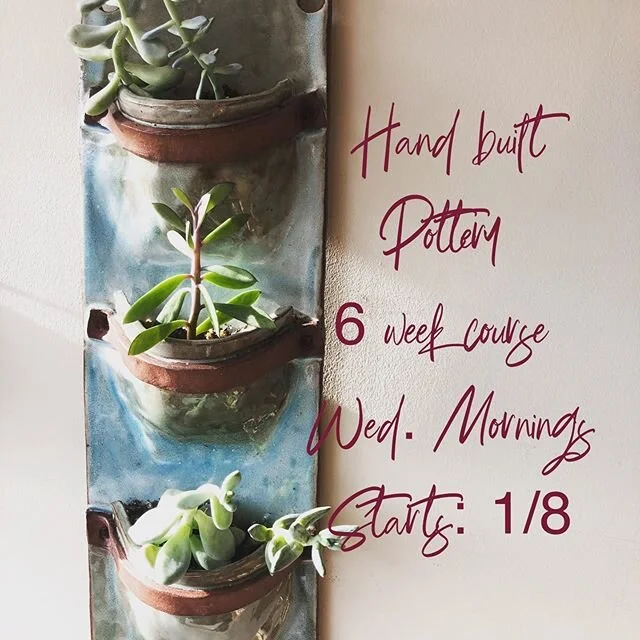 Hand built
Pottery
6 week course
Wed. Mornings
Starts: 1/8